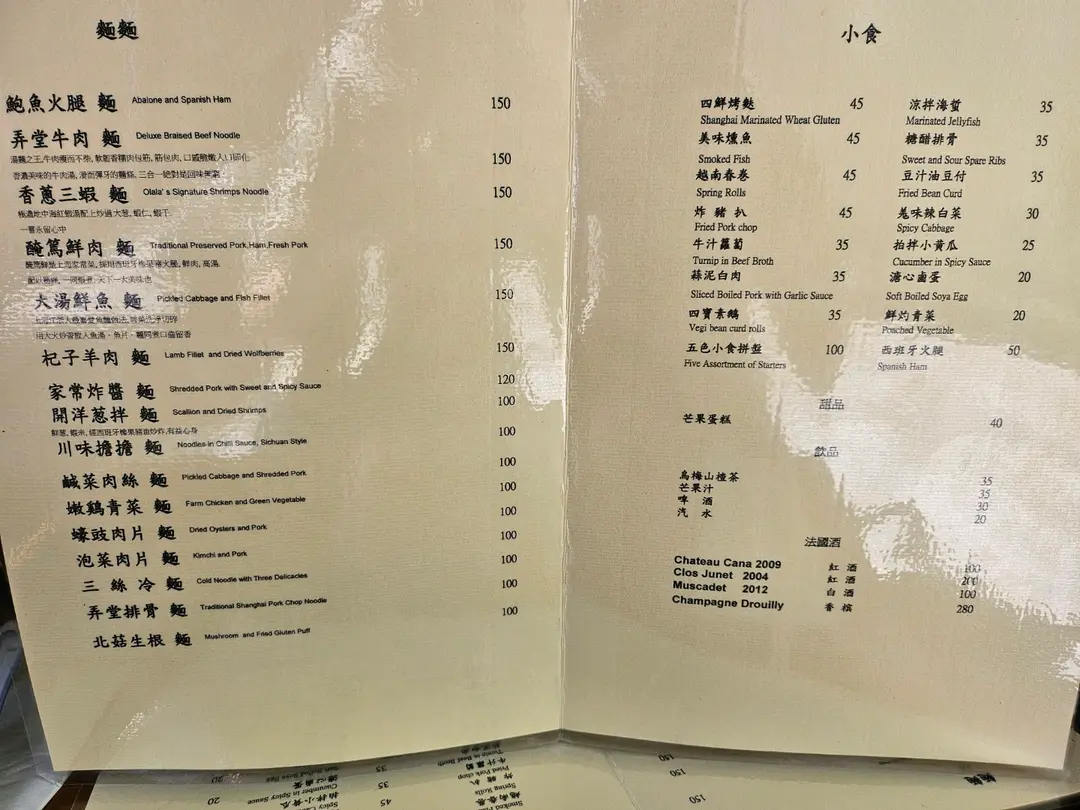 麵麵
鮑魚火腿 麵 Abalone and Spanish Ham 150
弄堂牛肉 麵 Deluxe Braised Beef Noodle 150
湯麵之王,牛肉瘦而不柴,
香濃美味的牛肉湯,
香蔥三蝦 麵 Olala's Signature Shrimps Noodle 150
一嘗永留心中
醃篤鮮肉 麵 Traditional Preserved Pork,Ham,Fresh Pork 150
大湯鮮魚 麵 Pickled Cabbage and Fish Fillet 150
杞子羊肉 麵 Lamb Fillet and Dried Wolfberries 150
家常炸醬 麵 Shredded Pork with Sweet and Spicy Sauce 120
開洋蔥拌 麵 Scallion and Dried Shrimps 100
川味擔擔 麵 Noodles in Chilli Sauce, Sichuan Style 100
鹹菜肉絲 麵 Pickled Cabbage and Shredded Pork 100
嫩鷄青菜 麵 Farm Chicken and Green Vegetable 100
蠔豉肉片 麵 Dried Oysters and Pork 100
泡菜肉片 麵 Kimchi and Pork 100
三 絲 冷 麵 Cold Noodle with Three Delicacies 100
弄堂排骨 麵 Traditional Shanghai Pork Chop Noodle 100
北菇生根 麵 Mushroom and Fried Gluten Puff 100
小食
四鮮烤麩 45
Shanghai Marinated Wheat Gluten
美味燻魚 45
Smoked Fish
越南春卷 45
Spring Rolls
炸 豬 扒 45
Fried Pork chop
牛汁蘿蔔 35
Turnip in Beef Broth
蒜泥白肉 35
Sliced Boiled Pork with Garlic Sauce
四寶素鵝 35
Vegi bean curd rolls
五色小食拼盤 100
Five Assortment of Starters
涼拌海蜇 35
Marinated Jellyfish
糖醋排骨 35
Sweet and Sour Spare Ribs
豆汁油豆付 35
Fried Bean Curd
味辣白菜 30
Spicy Cabbage
拍拌小黃瓜 25
Cucumber in Spicy Sauce
溏心鹵蛋 20
Soft Boiled Soya Egg
鮮灼青菜 20
Poached Vegetable
西班牙火腿 50
Spanish Ham
甜品
芒果蛋糕 40
飲品
烏梅山楂茶 35
芒果汁 35
啤 酒 30
汽 水 20
法國酒
Chateau Cana 2009 紅 酒 100
Clos Junet 2004 紅 酒 200
Muscadet 2012 白 酒 100
Champagne Drouilly 香 檳 280